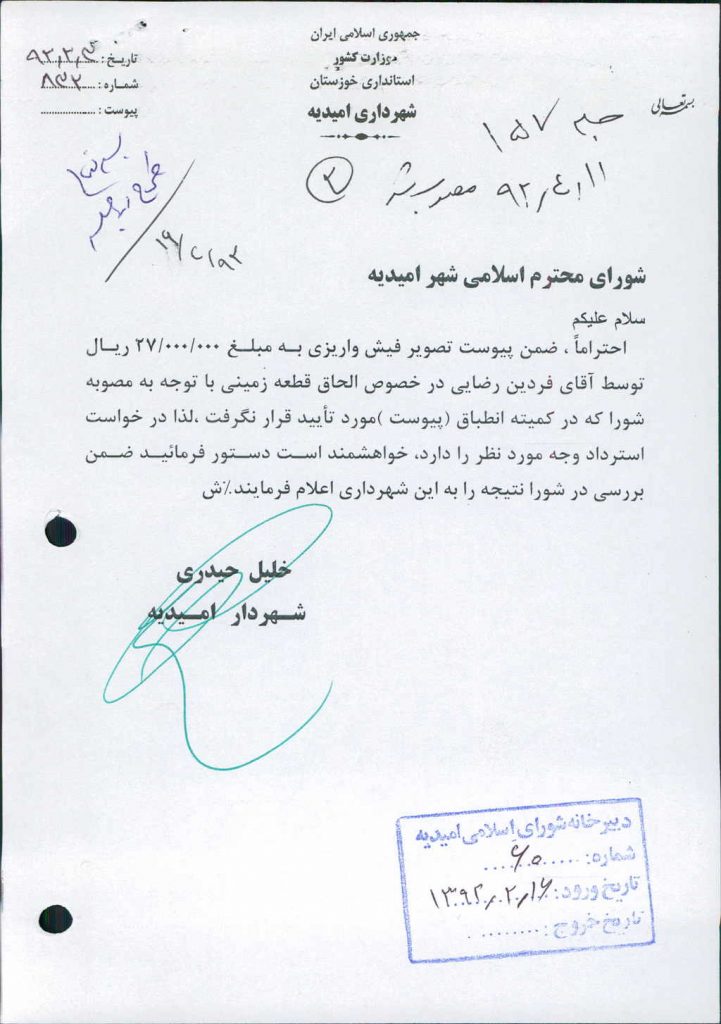 بسمه تعالی
جمهوری اسلامی ایران
وزارت کشور
استانداری خوزستان
شهرداری امیدیه
تاریخ :
شماره : ۸۳۲
پیوست :
۱۵۷
۹۲/۴/۱۱ مصوب شد
۲
شورای محترم اسلامی شهر امیدیه
سلام علیکم
احتراماً ، ضمن پیوست تصویر فیش واریزی به مبلغ ۲۷/۰۰۰/۰۰۰ ریال
توسط آقای فردین رضایی در خصوص الحاق قطعه زمینی با توجه به مصوبه
شورا که در کمیته انطباق (پیوست )مورد تأیید قرار نگرفت ،لذا در خواست
استرداد وجه مورد نظر را دارد، خواهشمند است دستور فرمائید ضمن
بررسی در شورا نتیجه را به این شهرداری اعلام فرمایند./ش
خلیل حیدری
شهردار امیدیه
دبیرخانه شورای اسلامی امیدیه
شماره: ۶۵
تاریخ ورود: ۱۳۹۲/۰۲/۱۶
تاریخ خروج :